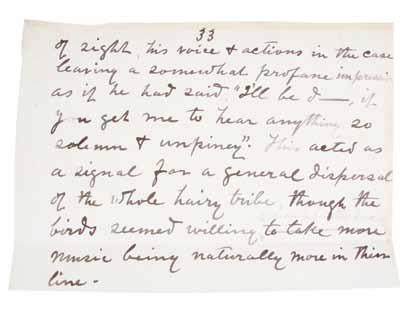 33
of sight, his voice & actions in the case
leaving a somewhat profane impression
as if he had said, "I'll be d——, if
you get me to hear anything so
solemn & unpiney". This acted as
a signal for a general dispersal
of the whole hairy tribe, though the
birds seemed willing to take more
music being naturally more in their
line -